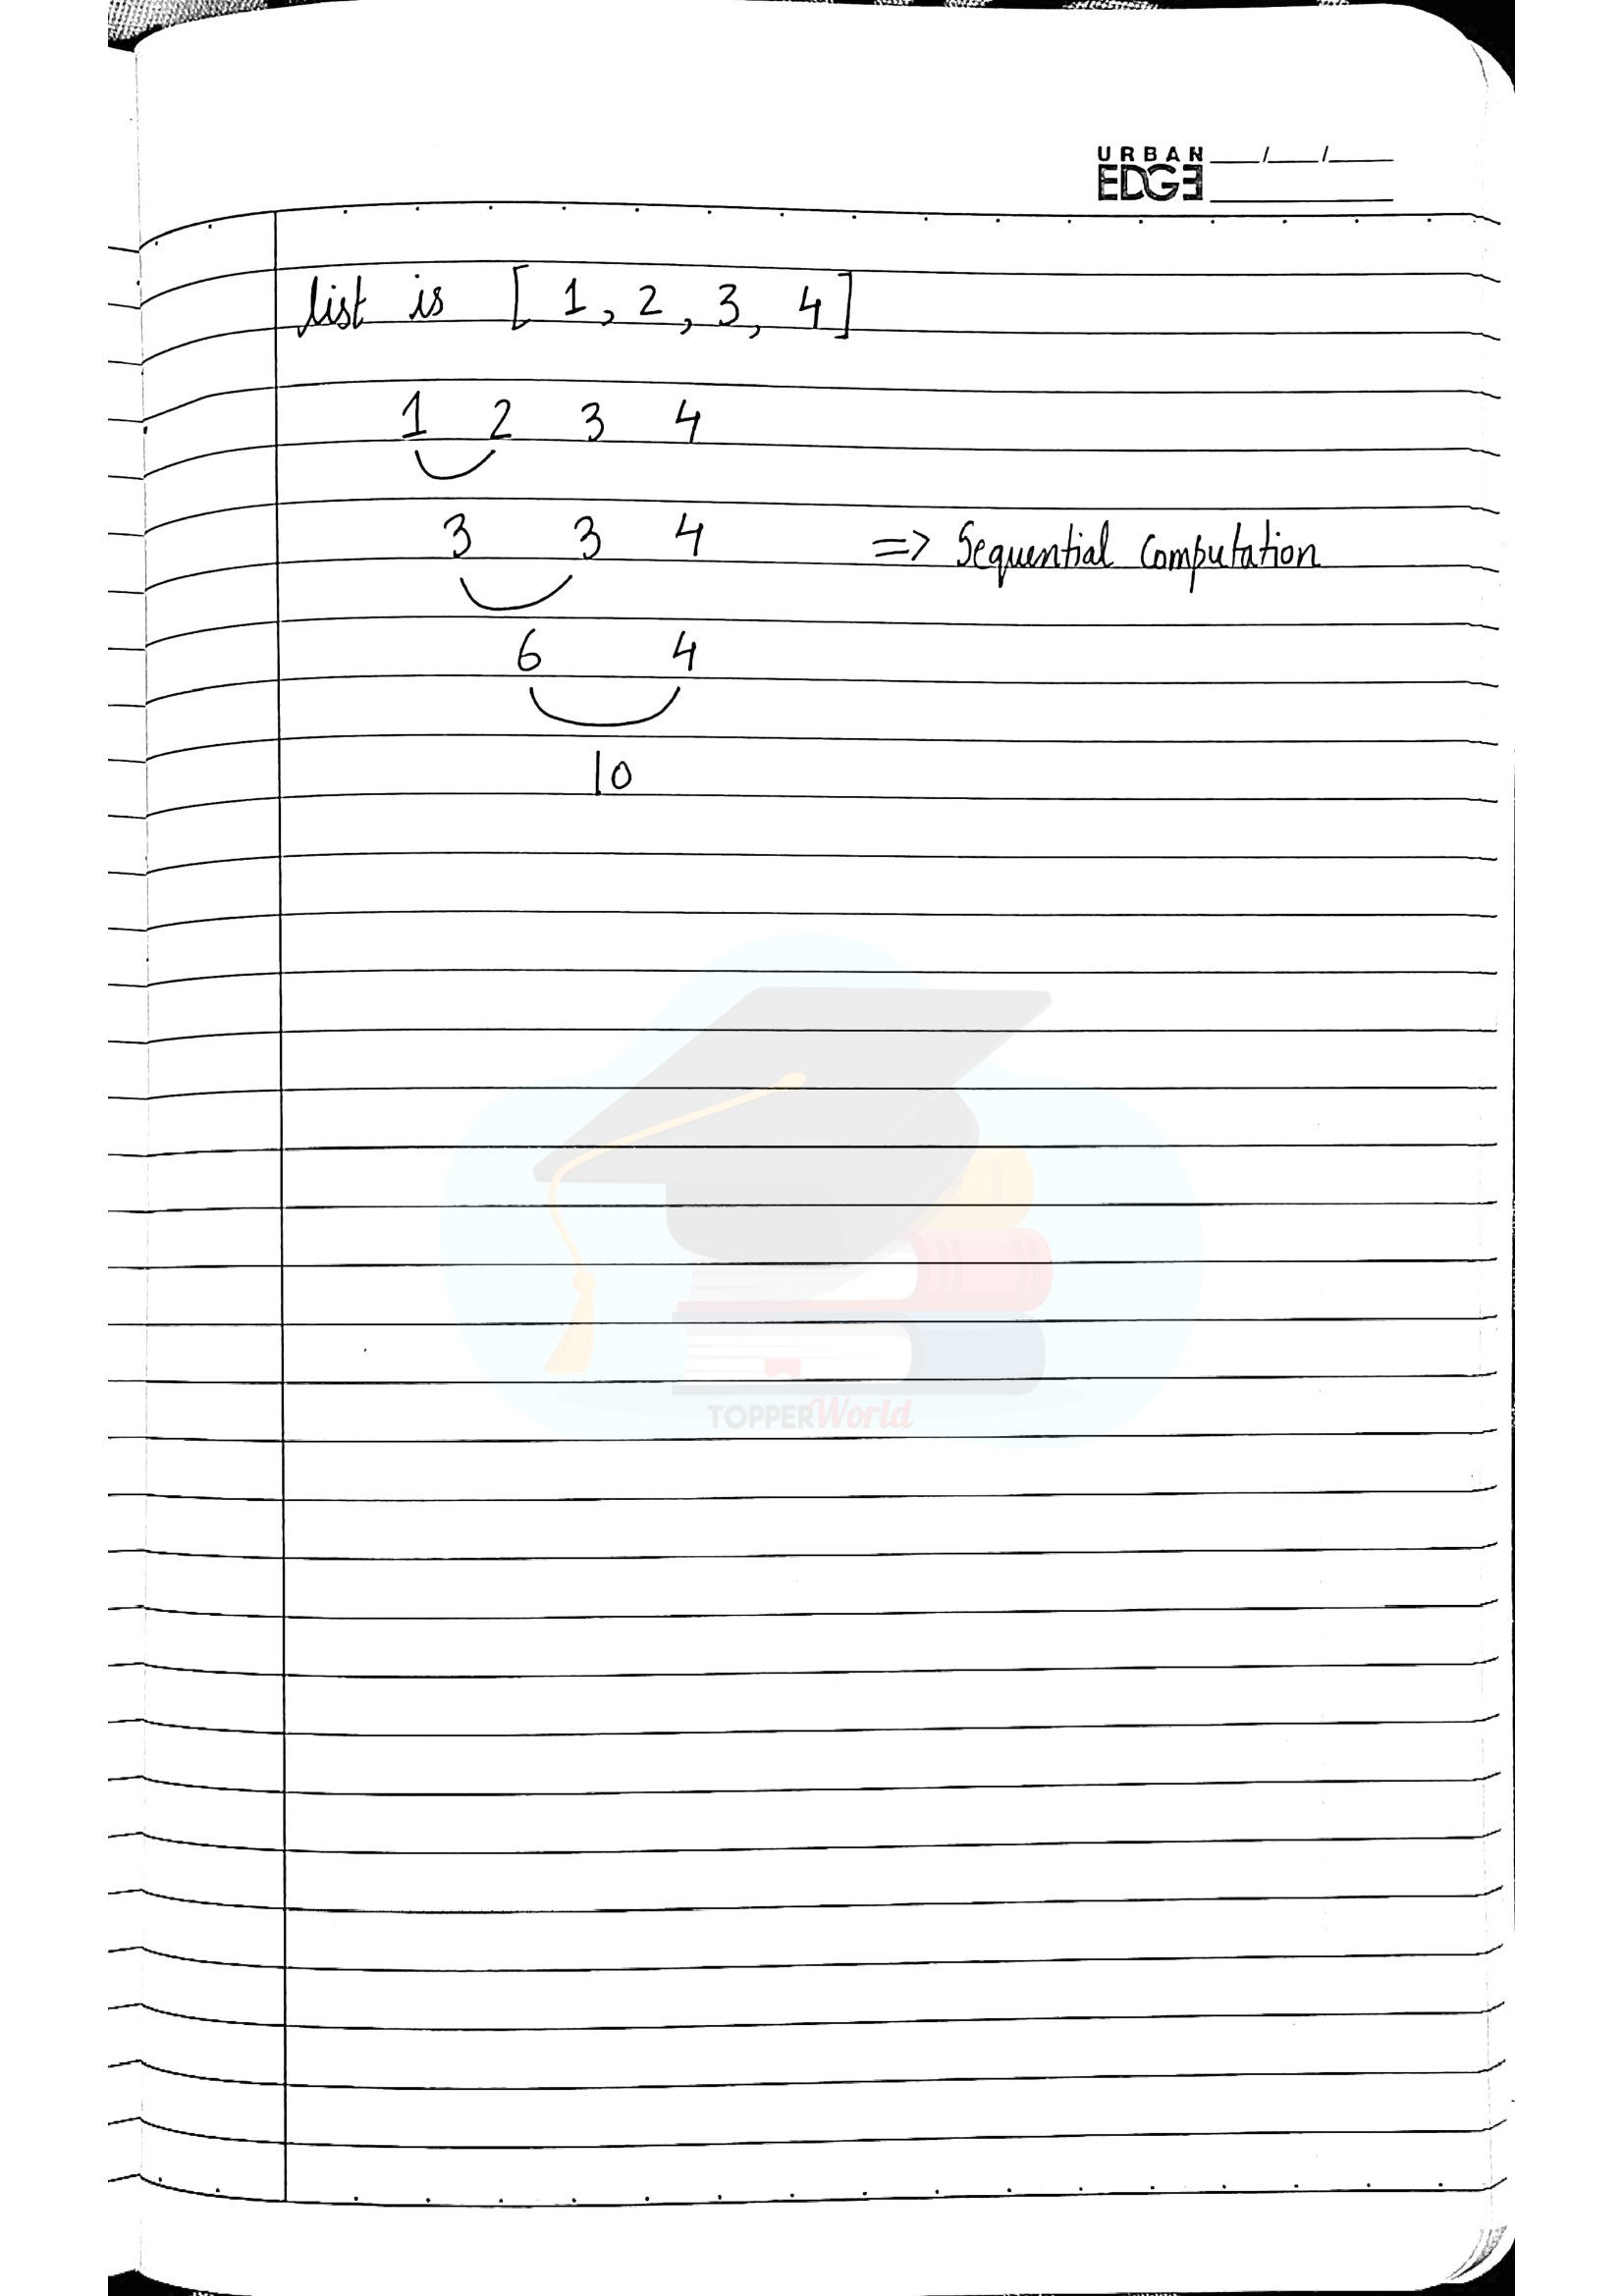 URBAN
EDGE
list is [1, 2, 3, 4]
1 2 3 4
3 3 4 => Sequential Computation
6 4
10
TOPPERWorld